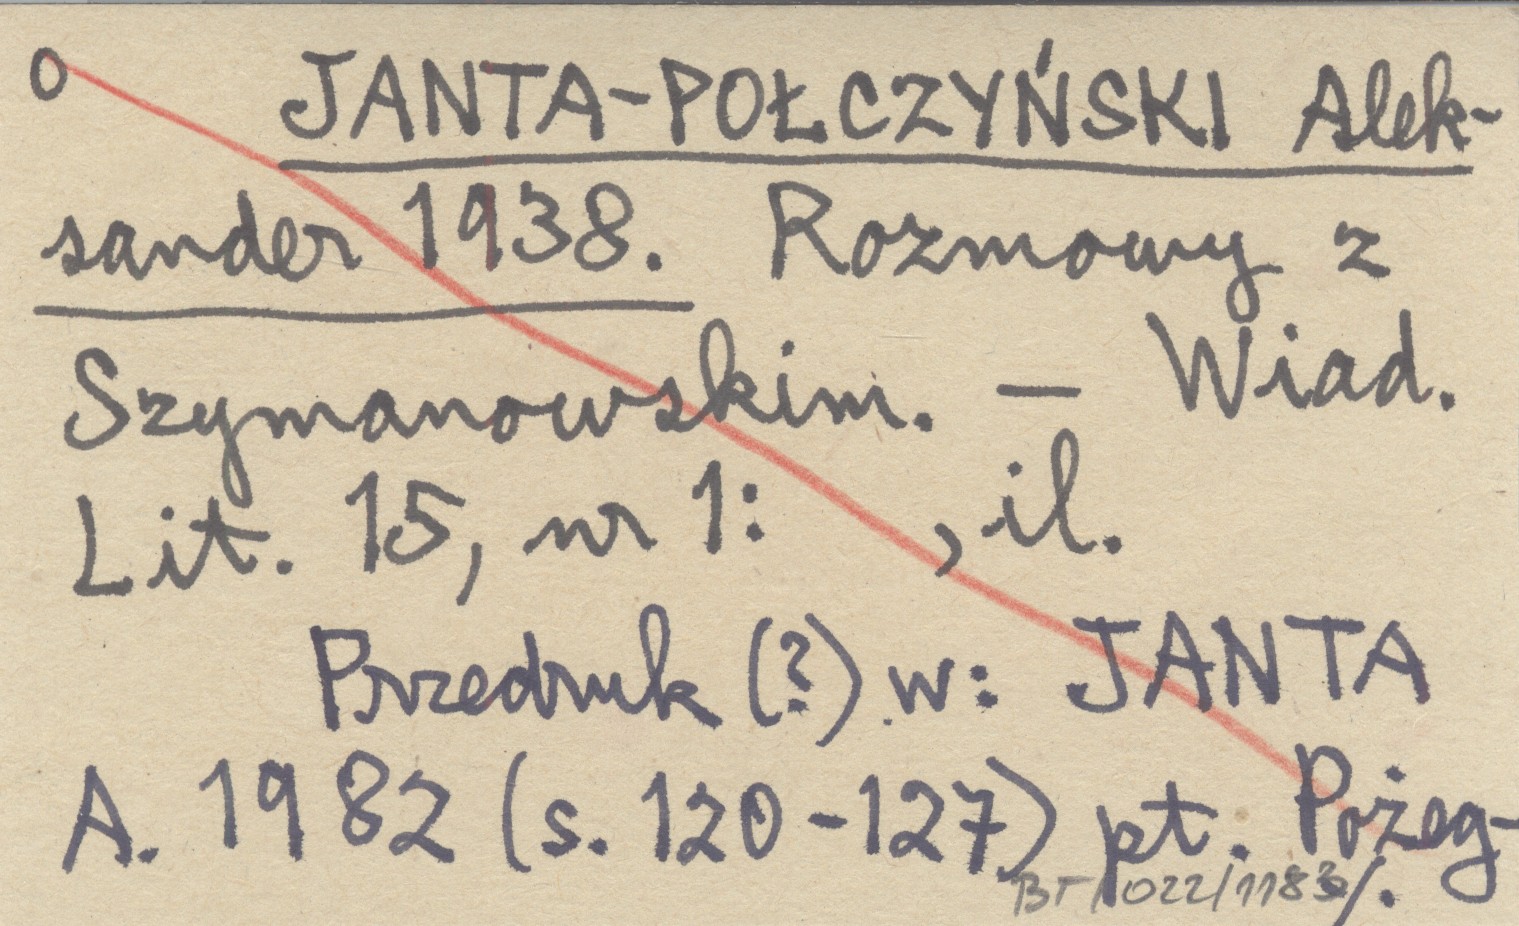 O JANTA-POŁCZYŃSKI Alek-
sander 1938. Rozmowy z
Szymanowskim. — Wiad.
Lit. 15, nr 1: , il.
Przedruk (?) w: JANTA
A. 1982 (s. 120-127) pt. Pożeg-
BT/022/1183/.